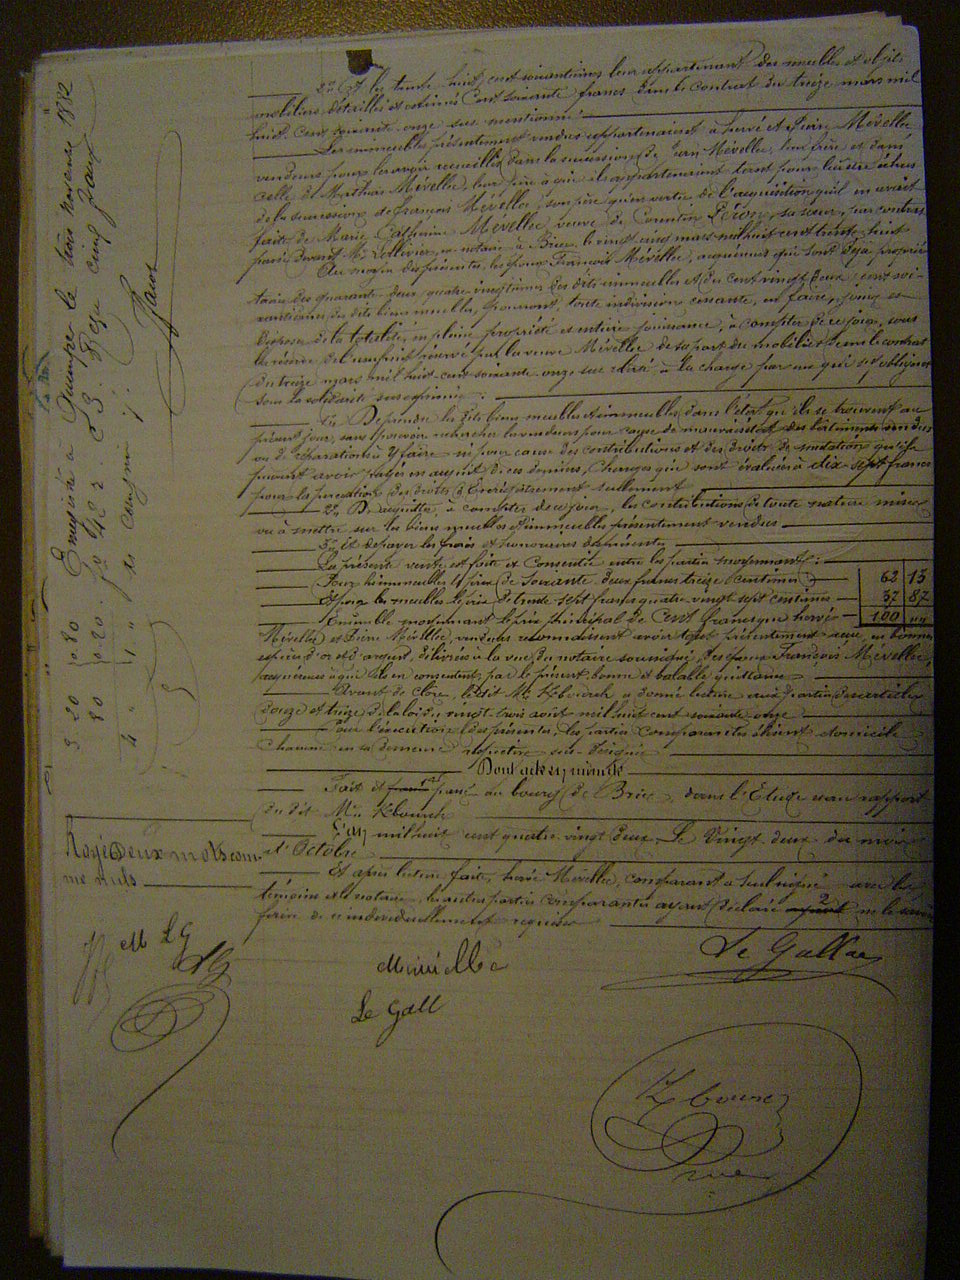 2º Et les trente huit cent soixantièmes leur appartenant des meubles et objets
mobiliers détaillés et estimés Cent soixante francs dans le contrat du treize mars mil
huit cent soixante onze sus mentionné.
Les immeubles présentement vendus appartenaient à hervé et Pierre Mévellec
vendeurs pour les avoir recueillis dans la succession de Jean Mévellec, leur frère et dans
celle de Mathias Mévellec, leur père à qui ils appartenaient tant pour lui être échus
de la succession de françois Mévellec, son père qu'en vertu de l'acquisition qu'il en avait
faite de Marie Catherine Mévellec veuve de Corentin Péron, sa sœur, par contrat
passé devant Me Lollivier, notaire à Briec le vingt cinq mars mil huit cent trente huit
Au moyen des présentes, les époux François Mévellec, acquéreurs qui sont déjà proprié-
taires des quarante deux quatre vingtièmes des dits immeubles et des cent vingt deux cent soi-
xantièmes des dits biens meubles, pourront, toute indivision cessante, en faire, jouir et
disposer de la totalité, en pleine propriété et entière jouissance, à compter de ce jour, sous
la réserve de l'usufruit réservé par la veuve Mévellec de sa part du mobilier suivant le contrat
du treize mars mil huit cent soixante onze sus relaté à la charge par eux qui s'y obligent
sous la solidarité sus exprimée :
1º De prendre les dits biens meubles et immeubles dans l'état où ils se trouvent au
présent jour, sans pouvoir rechercher les vendeurs pour cause de mauvais état des bâtiments vendus
ou de réparation à y faire ni pour cause des contributions et des droits de mutation qu'ils
peuvent avoir payés en acquit de ces derniers, Charges qui sont évaluées à dix-sept francs
pour la perception des droits d'Enregistrement seulement
2º D'acquitter, à compter de ce jour, les contributions de toute nature mises
ou à mettre sur les biens meubles et immeubles présentement vendus
3º Et de payer les frais et honoraires des présentes
La présente vente est faite et consentie entre les parties moyennant :
Pour les immeubles le prix de Soixante deux francs treize centimes 62 13
Et pour les meubles le prix de trente sept francs quatre vingt sept centimes 37 87
Ensemble moyennant le prix principal de Cent francs que hervé 100 "
Mévellec et Pierre Mévellec, vendeurs reconnaissent avoir tout présentement reçu, en bonnes
espèces d'or et d'argent, délivrées à la vue du notaire soussigné, des époux François Mévellec,
acquéreurs à qui ils en consentent, par le présent, bonne et valable quittance
Avant de clore, le dit Me Kbourch a donné lecture aux parties des articles
douze et treize de la loi du vingt trois août mil huit cent soixante onze
Pour l'exécution des présentes, les parties comparantes élisent domicile
Chacune en sa demeure respective sus-désignée
Dont acte en minute
Fait et passé au bourg de Briec, dans l'Etude et au rapport
du dit Me Kbourch
L'an mil huit cent quatre vingt deux, Le Vingt deux du mois
d'Octobre
Et après lecture faite, hervé Mévellec, comparant a seul signé avec les
témoins et le notaire, les autres parties comparantes ayant déclaré ne le savoir
faire de ce individuellement requises
Enregistré à Quimper le trois novembre 1882
fo 42 r C 3. Reçu cinq francs
Rayé deux mots com-
me nuls
M LG
LG
Mévellec
Le Gall
Le Gallae
Kbourch